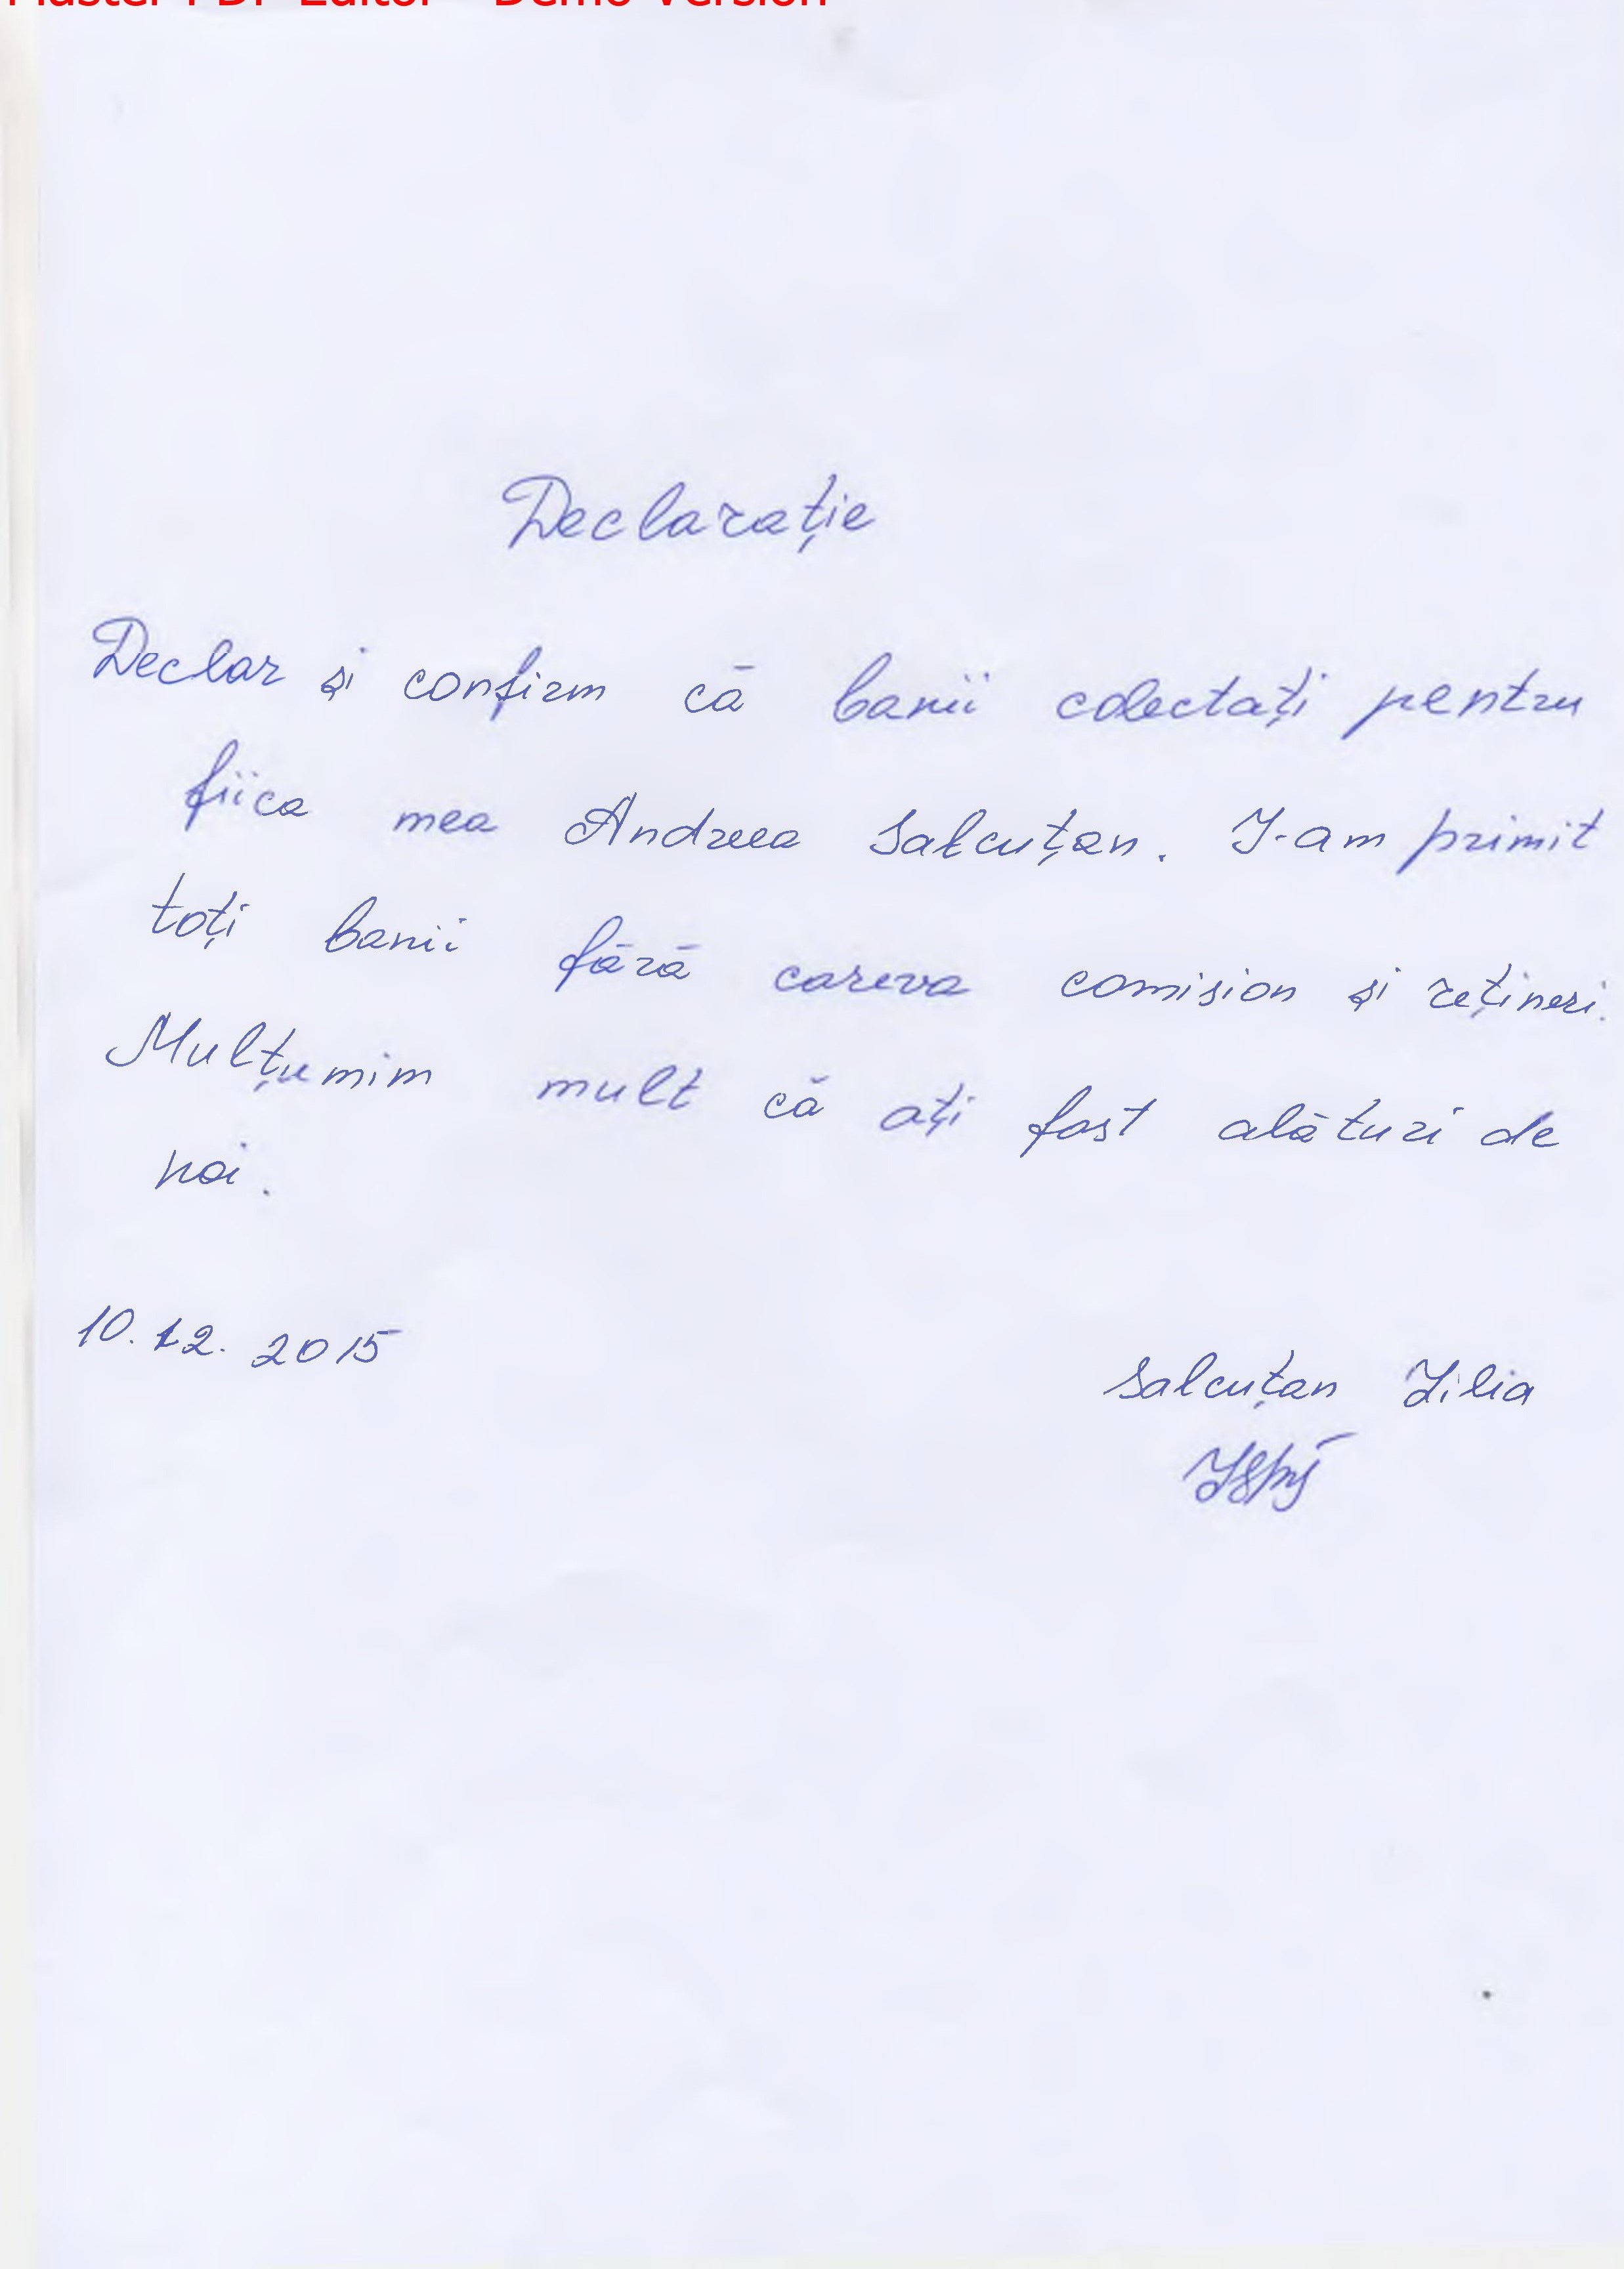 Master PDF Editor - Demo Version
Declarație
Declar și confirm că banii colectați pentru
fiica mea Andreea Salcuțan. I-am primit
toți banii fără careva comision și rețineri.
Mulțumim mult că ați fost alături de
noi.
10.12.2015
Salcuțan Lilia